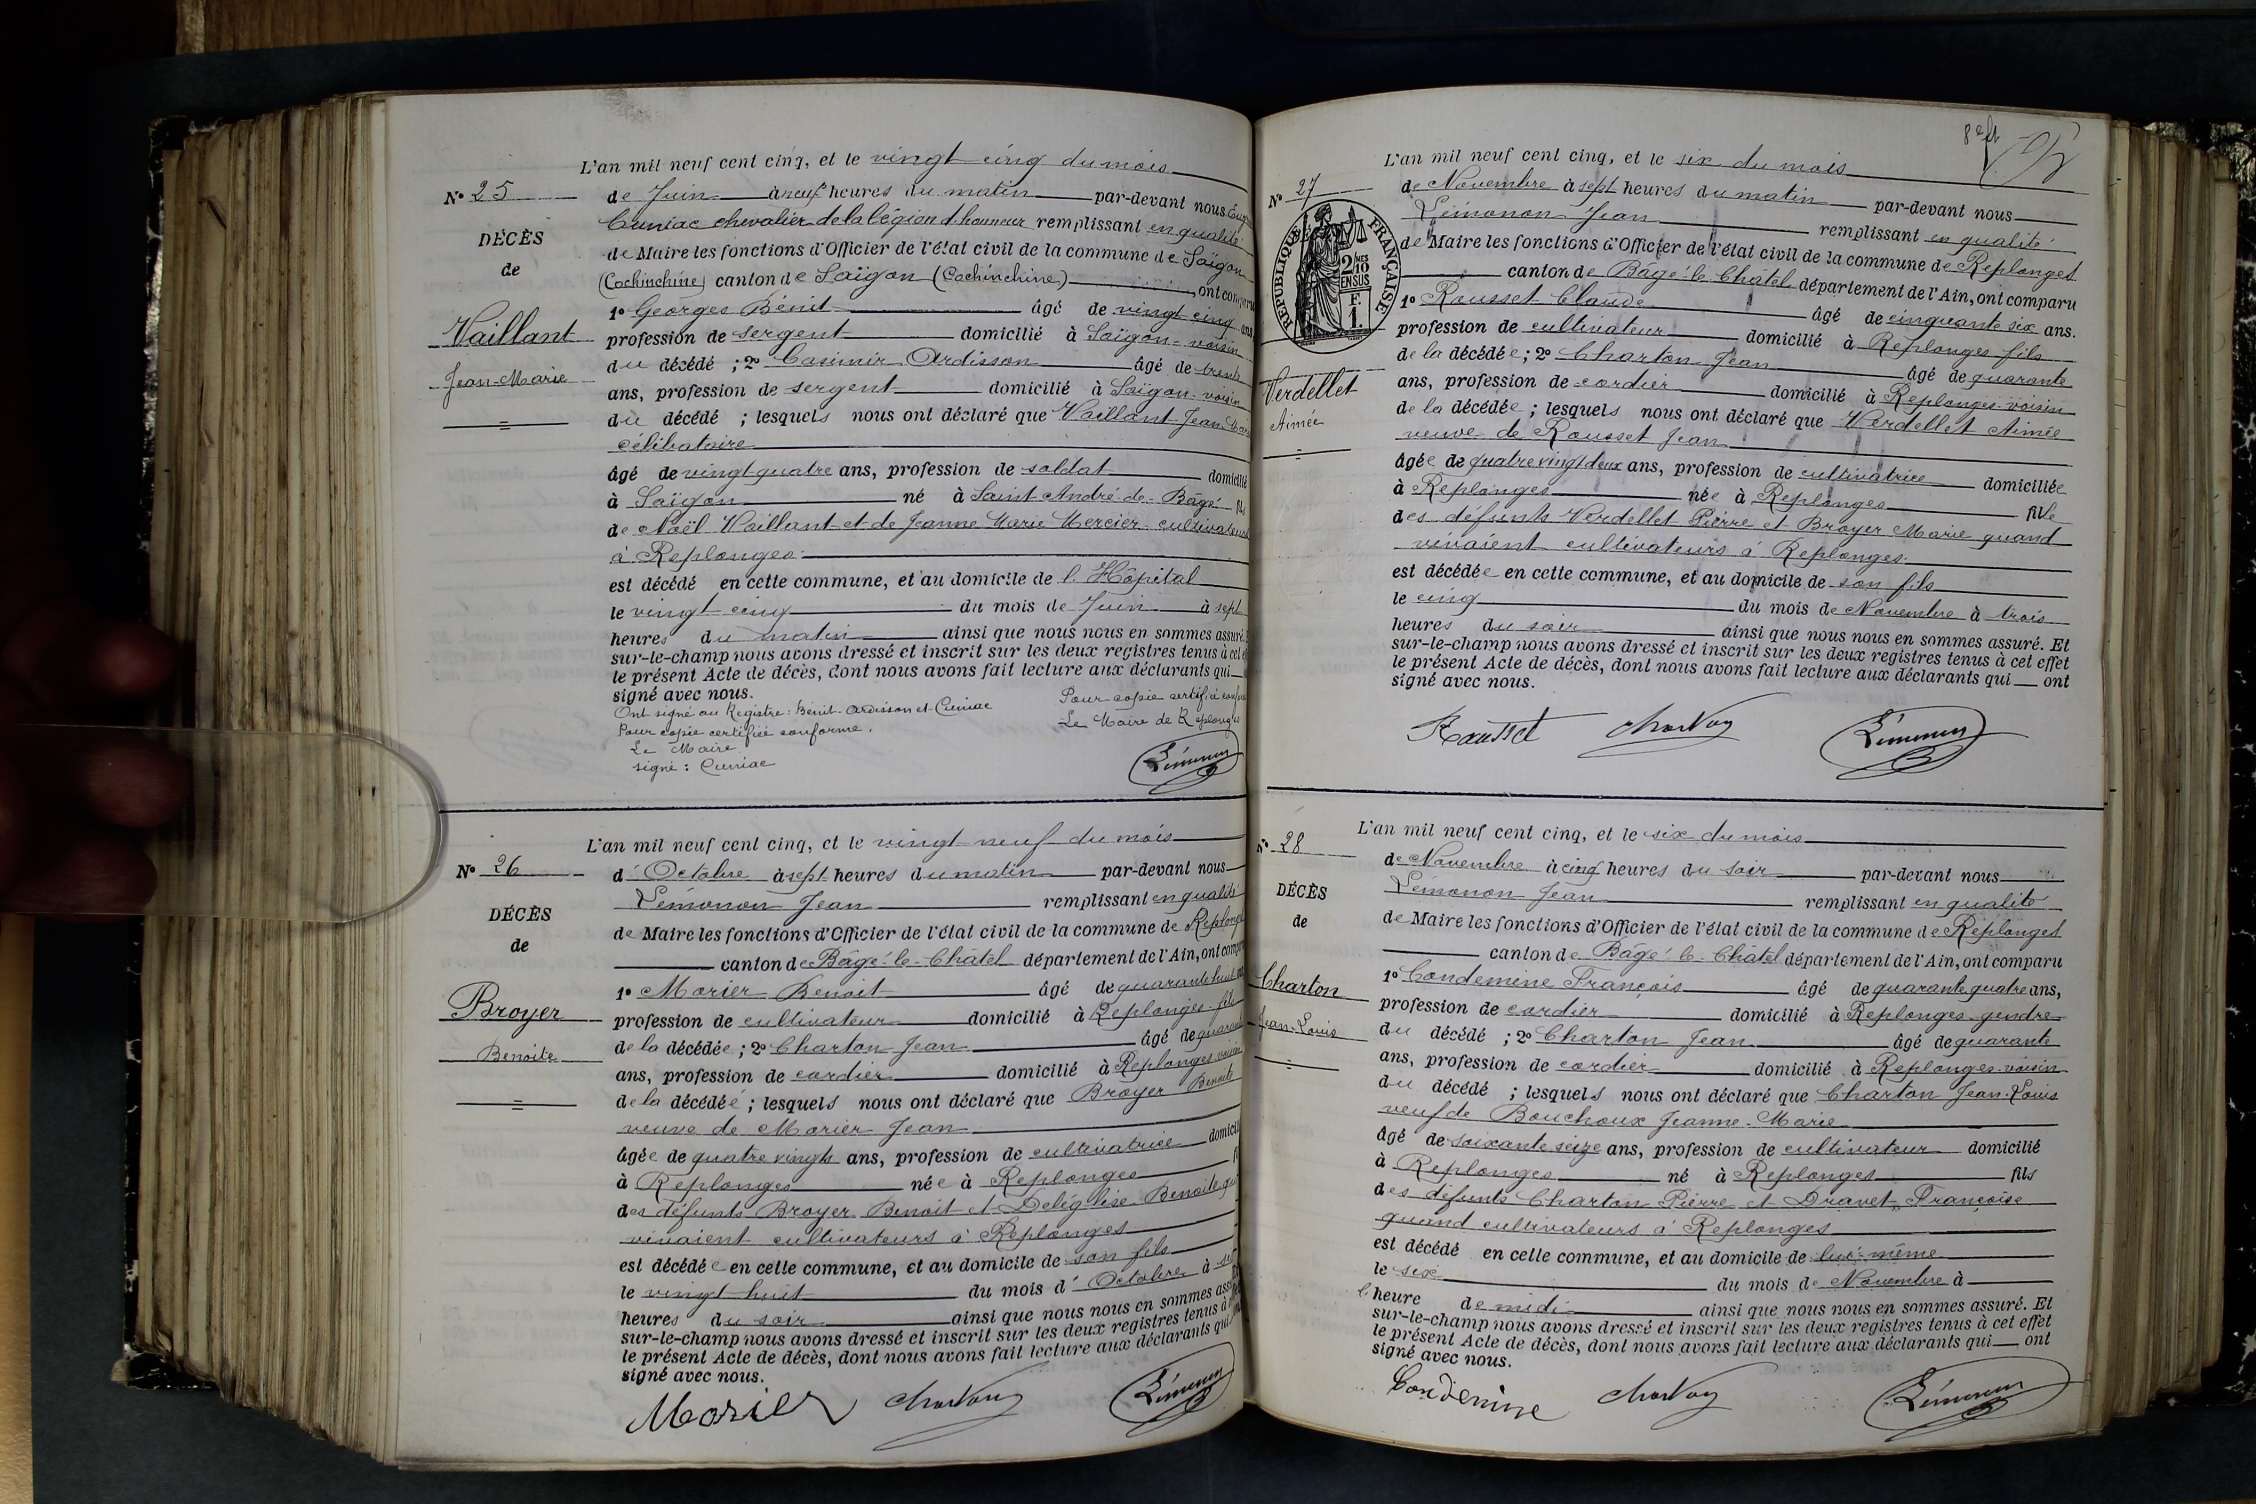 L'an mil neuf cent cinq, et le vingt cinq du mois
N° 25
de Juin à neuf heures du matin par-devant nous
Cuniac chevalier de la légion d'honneur remplissant en qualité
DÉCÈS
de Maire les fonctions d'Officier de l'état civil de la commune de Saïgon
de
(Cochinchine) canton de Saïgon (Cochinchine), ont comparu
1° Georges Bénit âgé de vingt cinq ans
Vaillant
profession de sergent domicilié à Saïgon - voisin
du décédé ; 2° Casimir Ardisson âgé de trente
Jean-Marie
ans, profession de sergent domicilié à Saïgon - voisin
du décédé ; lesquels nous ont déclaré que Vaillant Jean Marie
célibataire
âgé de vingt quatre ans, profession de soldat domicilié
à Saïgon né à Saint André-de-Bâgé fils
de Noël Vaillant et de Jeanne Marie Mercier cultivateurs
à Replonges
est décédé en cette commune, et au domicile de l'Hôpital
le vingt cinq du mois de Juin à sept
heures du matin ainsi que nous nous en sommes assuré. Et
sur-le-champ nous avons dressé et inscrit sur les deux registres tenus à cet effet
le présent Acte de décès, dont nous avons fait lecture aux déclarants qui
signé avec nous.
Ont signé au Registre : Bénit - Ardisson et Cuniac
Pour copie certifiée conforme.
Le Maire.
signé : Cuniac
Pour copie certifiée conforme
Le Maire de Replonges
Lémonon
L'an mil neuf cent cinq, et le vingt-neuf du mois
N° 26
d'Octobre à sept heures du matin par-devant nous
Lémonon Jean remplissant en qualité
DÉCÈS
de Maire les fonctions d'Officier de l'état civil de la commune de Replonges
de
canton de Bâgé-le-Châtel département de l'Ain, ont comparu
1° Morier Benoit âgé de quarante huit ans
Broyer
profession de cultivateur domicilié à Replonges - fils
de la décédée ; 2° Charton Jean âgé de quarante
Benoite
ans, profession de cordier domicilié à Replonges voisin
de la décédée ; lesquels nous ont déclaré que Broyer Benoite
veuve de Morier Jean
âgée de quatre vingts ans, profession de cultivatrice domiciliée
à Replonges née à Replonges
des défunts Broyer Benoit et Deléglise Benoite
vivaient cultivateurs à Replonges
est décédée en cette commune, et au domicile de son fils
le vingt-huit du mois d'Octobre à
heures du soir ainsi que nous nous en sommes assuré
sur-le-champ nous avons dressé et inscrit sur les deux registres tenus à
le présent Acte de décès, dont nous avons fait lecture aux déclarants qui
signé avec nous.
Morier Charton Lémonon
L'an mil neuf cent cinq, et le six du mois
N° 27
de Novembre à sept heures du matin par-devant nous
Lémonon Jean remplissant en qualité
RÉPUBLIQUE FRANÇAISE
2/10 MES EN SUS
F. 1.
de Maire les fonctions d'Officier de l'état civil de la commune de Replonges
canton de Bâgé-le-Châtel département de l'Ain, ont comparu
1° Rousset Claude âgé de cinquante six ans.
profession de cultivateur domicilié à Replonges fils
de la décédée ; 2° Charton Jean âgé de quarante
Verdellet
ans, profession de cordier domicilié à Replonges - voisin
Aimée
de la décédée ; lesquels nous ont déclaré que Verdellet Aimée
veuve de Rousset Jean
âgée de quatre vingt deux ans, profession de cultivatrice domiciliée
à Replonges née à Replonges fille
des défunts Verdellet Pierre et Broyer Marie quand
vivaient cultivateurs à Replonges
est décédée en cette commune, et au domicile de son fils
le cinq du mois de Novembre à trois
heures du soir ainsi que nous nous en sommes assuré. Et
sur-le-champ nous avons dressé et inscrit sur les deux registres tenus à cet effet
le présent Acte de décès, dont nous avons fait lecture aux déclarants qui ont
signé avec nous.
Rousset Charton Lémonon
L'an mil neuf cent cinq, et le six du mois
N° 28
de Novembre à cinq heures du soir par-devant nous
Lémonon Jean remplissant en qualité
DÉCÈS
de Maire les fonctions d'Officier de l'état civil de la commune de Replonges
de
canton de Bâgé-le-Châtel département de l'Ain, ont comparu
1° Condemine François âgé de quarante quatre ans,
Charton
profession de cordier domicilié à Replonges - gendre
Jean-Louis
du décédé ; 2° Charton Jean âgé de quarante
ans, profession de cordier domicilié à Replonges - voisin
du décédé ; lesquels nous ont déclaré que Charton Jean-Louis
veuf de Bouchoux Jeanne-Marie
âgé de soixante seize ans, profession de cultivateur domicilié
à Replonges né à Replonges fils
des défunts Charton Pierre et Dravet Françoise
quand cultivateurs à Replonges
est décédé en cette commune, et au domicile de lui-même
le six du mois de Novembre à
l'heure de midi ainsi que nous nous en sommes assuré. Et
sur-le-champ nous avons dressé et inscrit sur les deux registres tenus à cet effet
le présent Acte de décès, dont nous avons fait lecture aux déclarants qui ont
signé avec nous.
Condemine Charton Lémonon